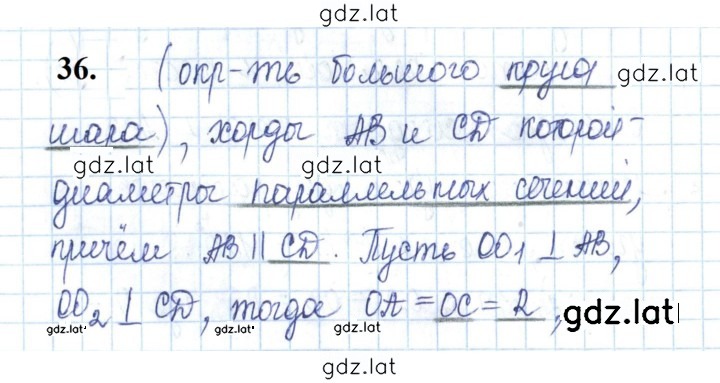 gdz.lat
36. (окр-ть большого круга gdz.lat
шара), хорды AB и CD которой-
gdz.lat gdz.lat
диаметры параллельных сечений,
gdz.lat gdz.lat
причём AB || CD. Пусть OO₁ ⊥ AB,
OO₂ ⊥ CD, тогда OA = OC = R, gdz.lat
gdz.lat gdz.lat gdz.lat
gdz.lat